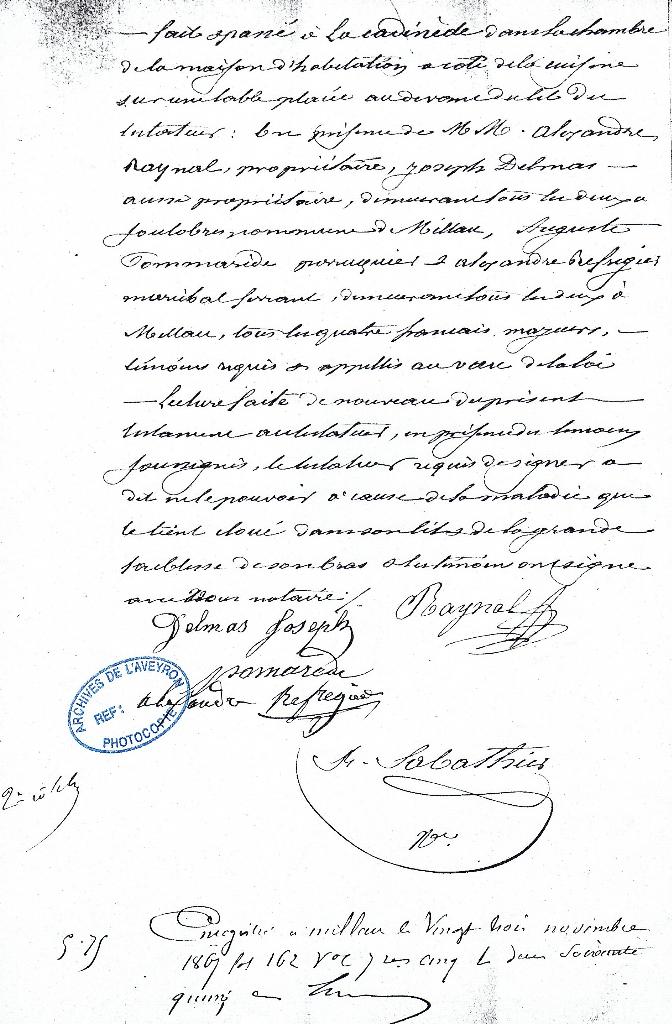 — fait et passé à La cadinède dans la chambre
de la maison d'habitation a coté de la cuisine
sur une table placée au devant du lit du
testateur : En présence de M M. Alexandre
Raynal, propriétaire, Joseph Delmas —
aussi propriétaire, demeurant tous les deux a
soulobres commune de Millau, Auguste
Pommarède perruquier & alexandre Refregier
maréchal ferrant, demeurant tous les deux à
Millau, tous les quatre français, majeurs, —
témoins requis et appellés au vœu de la loi
— Lecture faite de nouveau du présent
testament au testateur, en présence des témoins
soussignés, le testateur requis de signer a
dit ne le pouvoir à cause de la maladie qui
le tient cloué dans son lit & de la grande
faiblesse de son bras & les témoins ont signé
avec Nous notaire ./.
Delmas Joseph Raynal
pomarede
alexandre Refregier
ARCHIVES DE L'AVEYRON
REF:
PHOTOCOPIE
Sabathier
Nre
5.75
Enregistré a millau le Vingt trois novembre
186 fo 162 Vo C 7 reçu cinq f deux
quinze c